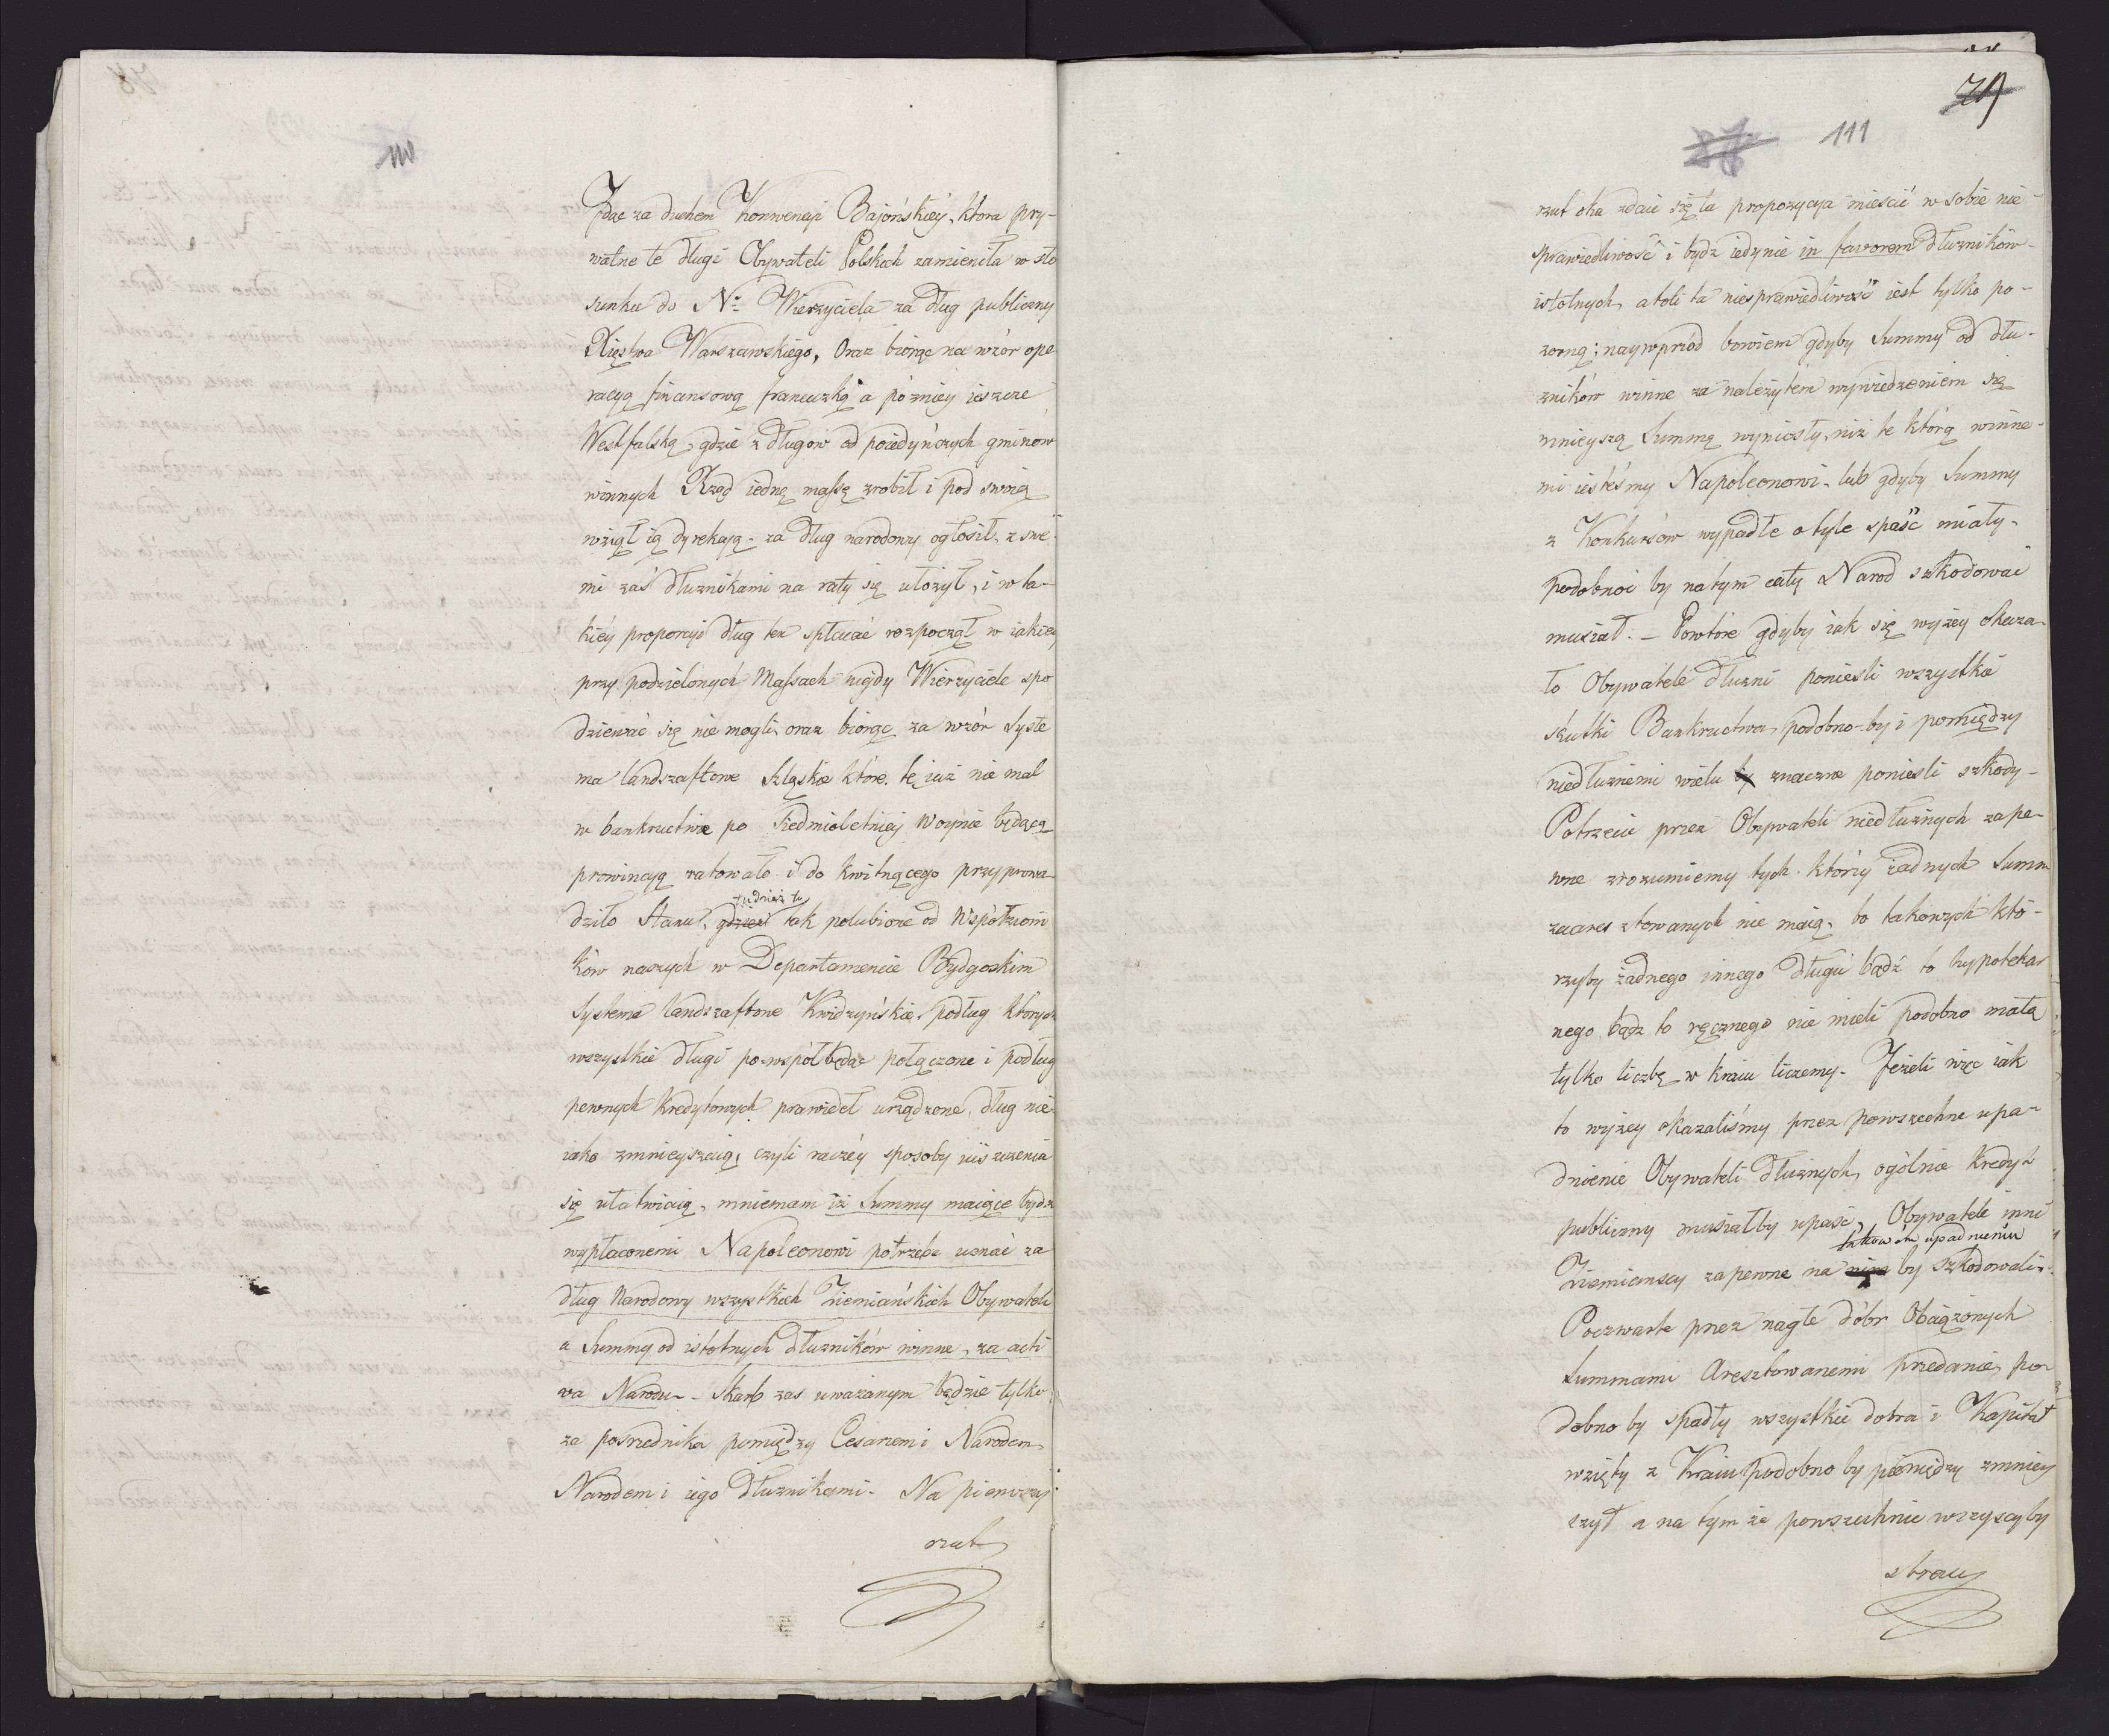 Idąc za duchem Konwencyi Bajońskiey, ktora pry-
watne te długi Obywateli Polskich zamieniła w sto
sunku do No Wierzyciela za dług publiczny
Xięstwa Warszawskiego, oraz biorąc na wzór ope
racyą finansową francuzką a pózniey ieszcze
Westfalską, gdzie z długow od poiedyńczych gminow
winnych Rząd iednę massę zrobił i pod swoią
wziął ią dyrekcyą, za dług narodowy ogłosił, z swe
mi zaś dłużnikami na raty się ułożył, i w ta-
kiéy proporcyi dług ten spłacać rozpoczął w iakiey
przy podzielonych Massach nigdy Wierzyciele spo
dziewać się nie mogli, oraz biorąc za wzór Syste
ma landszaftowe Szląskie które, tę iuż nie mal
w bankructwie po Siedmioletniey Woynie będącą
prowincyą ratowało i do kwitnącego przyprowa
tudzież to
dziło Stanu, gdzieś tak polubione od Współziom
ków naszych w Departamencie Bydgoskim
Systema landszaftowe Kwidzyńskie, podług ktorych
wszystkie długi po-wspól będąc połączone i podług
pewnych kredytowych prawideł urządzone, dług nie
iako zmnieyszaią, czyli raczéy sposoby uiszczenia
się ułatwiaią, mniemam iż Summy maiące bydz
wypłaconemi Napoleonowi potrzeba uznać za
dług Narodowy wszystkich Ziemiańskich Obywateli
a Summy od istotnych dłużników winne, za acti
va Narodu. - Skarb zas uważanym będzie tylko
za posrednika pomiędzy Cesarzem i Narodem
Narodem i iego Dłużnikami. Na pierwszy
rzut
79
111
rzut oka zdaie się ta propozycyja mieścić w sobie nie-
sprawiedliwość i bydz iedynie in favorem dłużników
istotnych, atoli ta niesprawiedliwość iest tylko po-
zorną; naywprzod bowiem gdyby Summy od dłu-
żników winne za należytém wywiedzeniem się
mnieyszą Summę wyniosły, niż te którą winne-
mi iesteśmy Napoleonowi, lub gdyby Summy
z Konkursów wypadłe o tyle spaść miały,
podobnoi by na tym cały Narod szkodować
musiał. - Powtóre gdyby iak się wyżey okaza-
ło Obywatele dłużni ponieśli wszystkie
skutki Bankructwa, podobno-by i pomiędzy
niedłużnemi wielu by znaczne ponieśli szkody-
Potrzecie przez Obywateli niedłużnych zape-
wne zrozumiemy tych, którzy żadnych Summ
zaaresztowanych nie maią, bo takowych któ-
rzyby żadnego innego długu bądź to hypotecz
nego bądz to ręcznego nie mieli podobno małą
tylko liczbę w kraiu liczemy. Jeżeli więc iak
to wyżey okazaliśmy przez powszechne upa-
dnienie Obywateli Dłużnych, ogólnie kredyt
publiczny musiałby upaść, Obywatele inni
takowém upadnieniu
Ziemianscy zapewne na nim by szkodowali.
Poczwarte przez nagłe dóbr obciążonych
Summami Aresztowanemi przedanie, po-
dobno by spadły wszystkie dobra i Kapitał
wzięty z Kraiu podobno by pieniędzy zmniey
szył a na tym że powszechnie wszyscyby
stracy